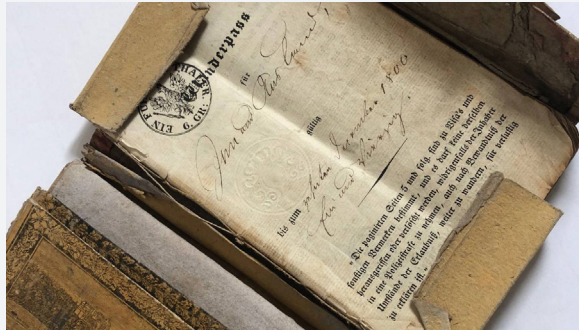 Wanderpass
für
In- und Ausland
gültig
bis zum zehnten December 1800
ein und vierzig.
„Die paginirten Seiten 5 und folg. sind zu Visa's und
sonstigen Vermerken bestimmt, und es darf keine derselben
herausgerissen oder verlöscht werden, widrigenfalls der Inhaber
in eine Polizeistrafe zu nehmen, auch nach Bewandniß der
Umstände der Erlaubniß, weiter zu wandern, für verlustig
zu erklären ist.“
EIN THALER.
6. GR: